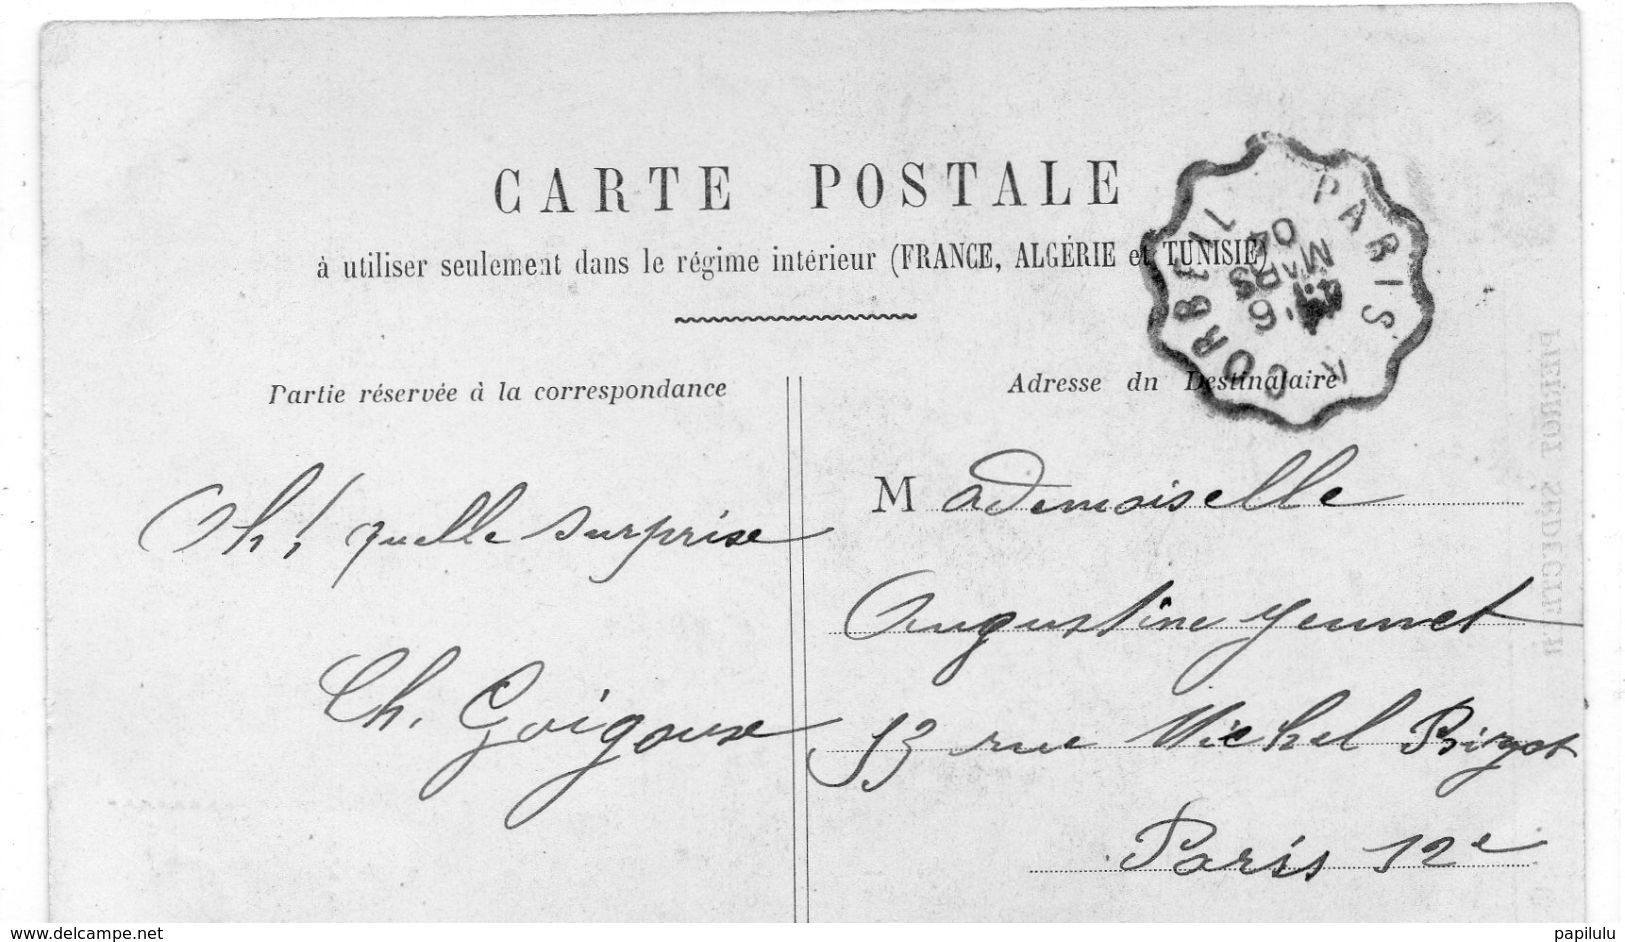 CARTE POSTALE
à utiliser seulement dans le régime intérieur (FRANCE, ALGÉRIE et TUNISIE)
PARIS
CORBEIL
6
MARS
Partie réservée à la correspondance
Adresse du Destinataire
Oh! quelle surprise
Ch. Goigoux
Mademoiselle
Augustine Jeunet
53 rue Michel Bizot
Paris 12e
PIERROT
www.delcampe.net
papilulu